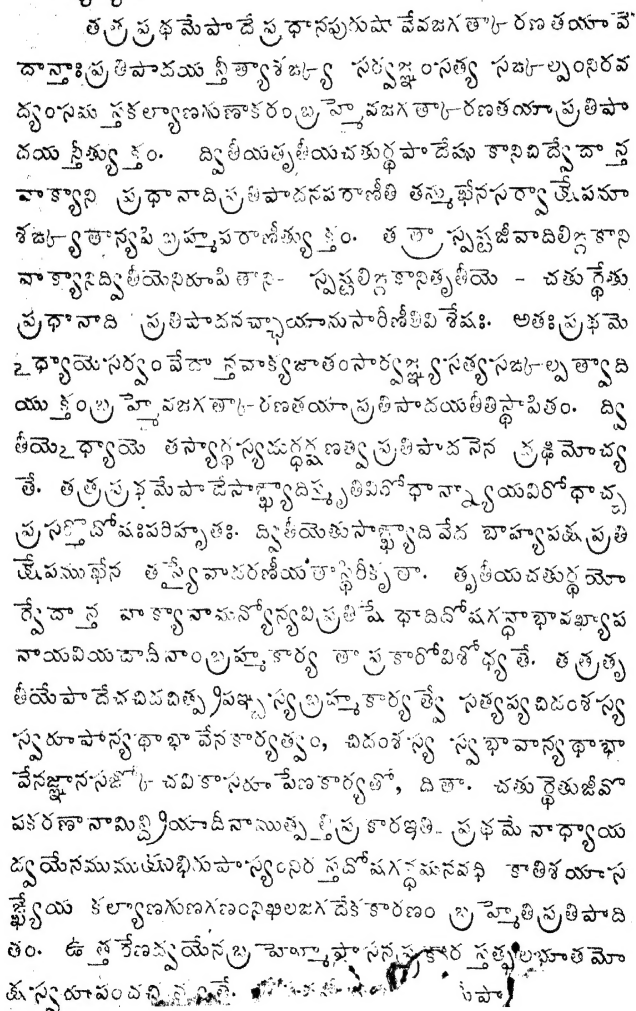 తత్రప్రథమేపాదే ప్రధానపురుషా వేవజగత్కారణతయా వే
దాన్తాఃప్రతిపాదయన్తీత్యాశఙ్క్య సర్వజ్ఞంసత్య సఙ్కల్పంనిరవ
ద్యంసమస్తకల్యాణగుణాకరంబ్రహ్మైవజగత్కారణతయాప్రతిపా
దయన్తీత్యుక్తం. ద్వితీయతృతీయచతుర్థపాదేషు కానిచిద్వేదాన్త
వాక్యాని ప్రధానాదిప్రతిపాదనపరాణీతి తన్ముఖేనసర్వాక్షేపమా
శఙ్క్యతాన్యపి బ్రహ్మపరాణీత్యుక్తం. తత్రాస్పష్టజీవాదిలిఙ్గకాని
వాక్యానిద్వితీయేనిరూపితాని- స్పష్టలిఙ్గకానితృతీయే - చతుర్థేతు
ప్రధానాది ప్రతిపాదనచ్ఛాయానుసారీణీతివిశేషః. అతఃప్రథమె
ఽధ్యాయెసర్వంవేదాన్తవాక్యజాతంసార్వజ్ఞ్యసత్యసఙ్కల్పత్వాది
యుక్తంబ్రహ్మైవజగత్కారణతయాప్రతిపాదయతీతిస్థాపితం. ద్వి
తీయెఽధ్యాయె తస్యార్థస్యదుర్ధర్షణత్వప్రతిపాదనెన ద్రఢిమోచ్య
తే. తత్రప్రథమేపాదేసాఙ్ఖ్యాదిస్మృతివిరోధాన్న్యాయవిరోధాచ్చ
ప్రసక్తోదోషఃపరిహృతః. ద్వితీయెతుసాఙ్ఖ్యాదివేద బాహ్యపక్షప్రతి
క్షేపముఖేన తస్యైవాదరణీయతాస్థిరీకృతా. తృతీయచతుర్థయో
ర్వేదాన్త వాక్యానామన్యోన్యవిప్రతిషే ధాదిదోషగన్ధాభావఖ్యాప
నాయవియదాదీనాంబ్రహ్మకార్య తాప్రకారోవిశోధ్యతే. తత్రతృ
తీయేపాదేచచిదచిత్ప్రపఞ్చస్యబ్రహ్మకార్యత్వే సత్యప్యచిదంశస్య
స్వరూపాన్యథాభావేనకార్యత్వం, చిదంశస్య స్వభావాన్యథాభా
వేనజ్ఞానసఙ్కోచవికాసరూపేణకార్యతో, దితా. చతుర్థేతుజీవో
పకరణానామిన్ద్రియాదీనాముత్పత్తిప్రకారఇతి- ప్రథమేనాధ్యాయ
ద్వయేనముముక్షుభిరుపాస్యంనిరస్తదోషగన్ధమనవధి కాతిశయాస
ఙ్ఖ్యేయ కల్యాణగుణగణంనిఖిలజగదేకకారణం బ్రహ్మేతిప్రతిపాది
తం. ఉత్తరేణద్వయేనబ్రహ్మోపాసనప్రకార స్తత్ఫలభూతమో
క్షస్వరూపంచచిన్త్యతే.